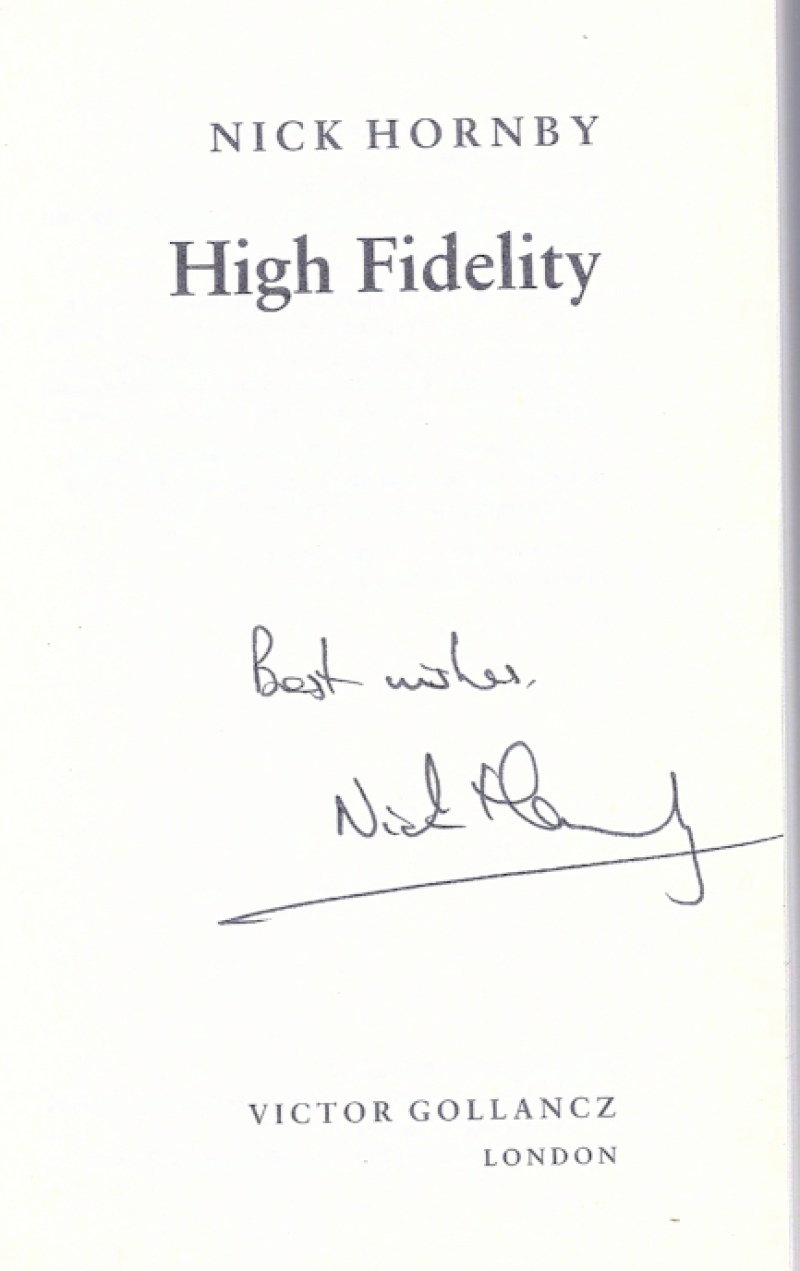 NICK HORNBY
High Fidelity
Best wishes,
Nick Hornby
VICTOR GOLLANCZ
LONDON